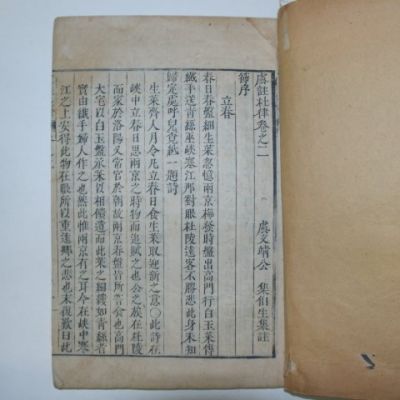 虞註杜律卷之二
虞文靖公 集伯生集註
節序
立春
春日春盤細生菜忽憶兩京梅發時盤出高門行白玉菜傳
纖手送青絲巫峽寒江那對眼杜陵遠客不勝悲此身未知
歸定處呼兒覓紙一題詩
生菜齊人月令凡立春日食生菜取迎新之意〇此詩在
峽中立春日思兩京之時物而追賦之也公之族在杜陵
而家於洛陽又常官於朝故兩京春盤皆所嘗食也高門
大宅以白玉盤承菜以相餽遺而此菜之細織如青絲者
實由纖手婦人作之也然此惟兩京有之耳今在峽中寒
江之上安得此物在眼所以重遠鄉之悲也末復歎曰此